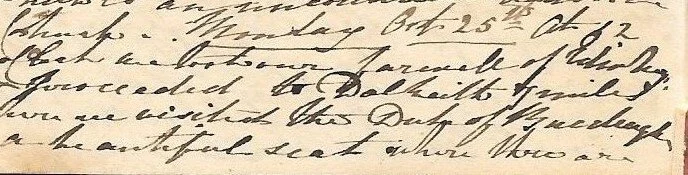 Monday Oct 25th At 12
o'Clock we took our farewell of Edinbg.
& proceeded to Dalkeith 7 miles
were we visited the Duke of Buccleugh
a beautiful seat where there are